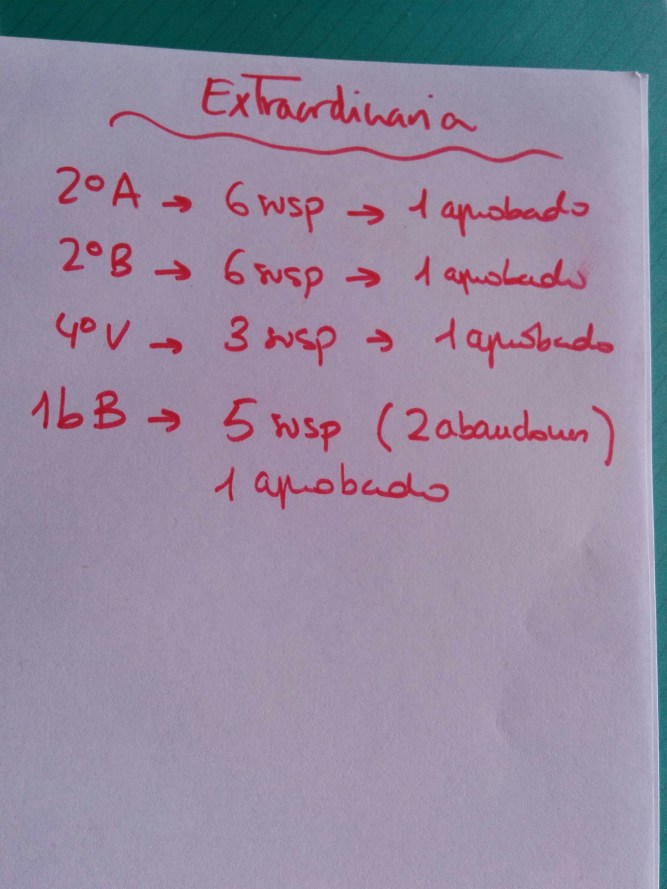 Extraordinaria
2º A → 6 susp → 1 aprobado
2º B → 6 susp → 1 aprobado
4º V → 3 susp → 1 aprobado
1b B → 5 susp (2 abandonan)
1 aprobado